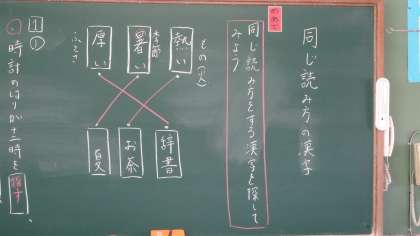 同じ読み方の漢字
めあて
同じ読み方をする漢字を探して
みよう
もの(火)
熱い
季節
暑い
厚い
ふとさ
辞書
お茶
夏
1
①
時計のはりが三時を指す